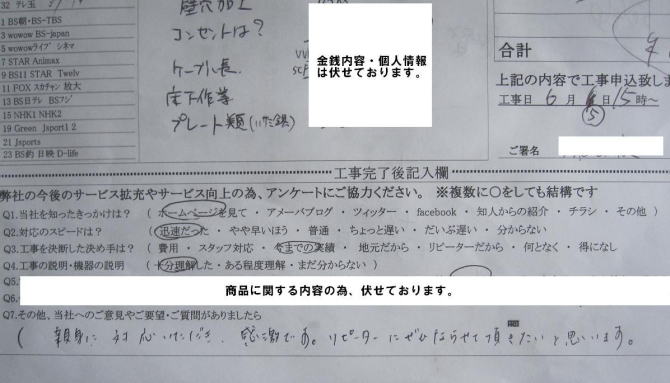 32 テレ玉
壁穴加工
1 BS朝・BS-TBS
3 wowow BS-japan
コンセントは?
5 wowowライブ シネマ
7 STAR Animax
9 BS11 STAR Twelv
11 FOX スカチャン 放大
13 BS日テレ BSフジ
15 NHK1 NHK2
19 Green Jsport1 2
21 Jsports
23 BS釣 日映 D-life
ケーブル長
床下作業
プレート類
金銭内容・個人情報
は伏せております。
合計
上記の内容で工事申込致しま
工事日 6 月 日 15 時~
⑤
ご署名
工事完了後記入欄
弊社の今後のサービス拡充やサービス向上の為、アンケートにご協力ください。 ※複数に○をしても結構です
Q1.当社を知ったきっかけは? ( ホームページを見て ・ アメーバブログ ・ ツィッター ・ facebook ・ 知人からの紹介 ・ チラシ ・ その他 )
Q2.対応のスピードは? ( 迅速だった ・ やや早いほう ・ 普通 ・ ちょっと遅い ・ だいぶ遅い ・ 分からない
Q3.工事を決断した決め手は? ( 費用 ・ スタッフ対応 ・ 今までの実績 ・ 地元だから ・ リピーターだから ・ 何となく ・ 得になし
Q4.工事の説明・機器の説明 ( 十分理解した ・ ある程度理解 ・ まだ分からない )
Q5
Q6
商品に関する内容の為、伏せております。
Q7.その他、当社へのご意見やご要望・ご質問がありましたら
( 親身に対応いただき、感激です。リピーターにぜひならせて頂きたいと思います。